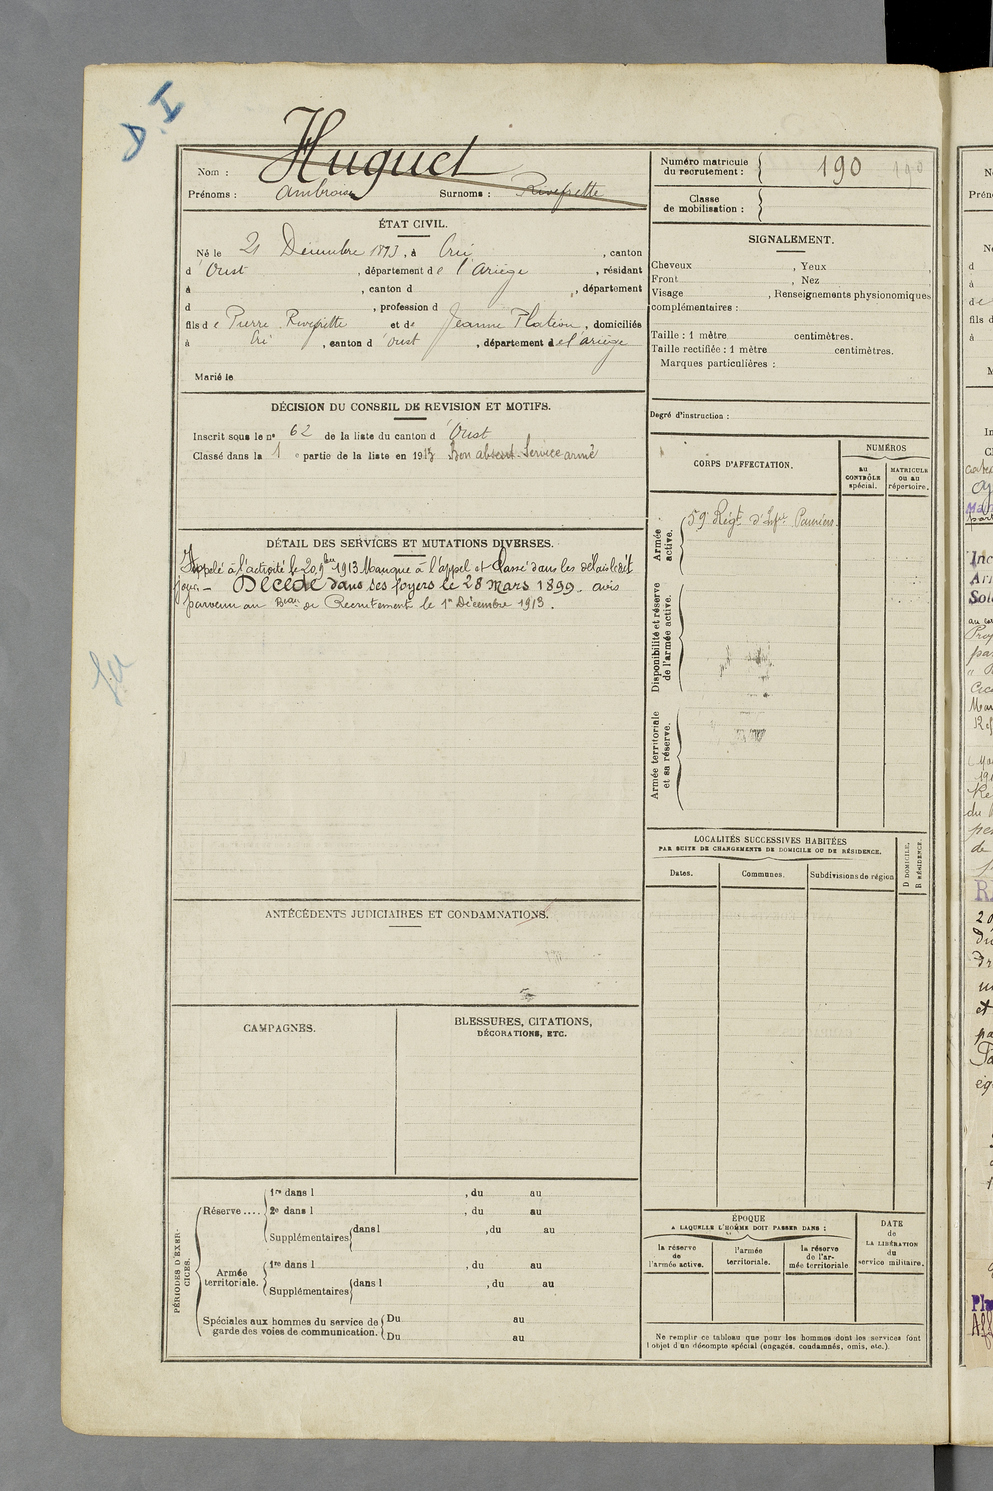 D.I
Huguet
Nom :
Prénoms : Ambroise Surnoms : Rivefrette
Numéro matricule
du recrutement : 190
Classe
de mobilisation :
ÉTAT CIVIL.
Né le 21 Décembre 1893, à Ercé, canton
d'Oust, département de l'Ariège, résidant
à , canton d , département
d , profession d
fils de Pierre Rivefrette et de Jeanne , domiciliés
à Ercé, canton d'Oust, département de l'ariège
Marié le
SIGNALEMENT.
Cheveux , Yeux ,
Front , Nez
Visage , Renseignements physionomiques
complémentaires :
Taille : 1 mètre centimètres.
Taille rectifiée : 1 mètre centimètres.
Marques particulières :
Degré d'instruction :
DÉCISION DU CONSEIL DE REVISION ET MOTIFS.
Inscrit sous le n° 62 de la liste du canton d'Oust
Classé dans la 1e partie de la liste en 1913 Bon absent-Service armé
DÉTAIL DES SERVICES ET MUTATIONS DIVERSES.
Appelé à l'activité le 20 9bre 1913 Manque à l'appel et Classé dans les délais
Décédé dans ses foyers le 28 Mars 1899. avis
parvenu au Beau de Recrutement le 1er Décembre 1913.
CORPS D'AFFECTATION.
NUMÉROS
au
CONTRÔLE
spécial.
MATRICULE
ou au
répertoire.
Armée
active.
59e Régt d'Infie Pamiers
Disponibilité et réserve
de l'armée active.
Armée territoriale
et sa réserve.
LOCALITÉS SUCCESSIVES HABITÉES
PAR SUITE DE CHANGEMENTS DE DOMICILE OU DE RÉSIDENCE.
Dates.
Communes.
Subdivisions de région
D DOMICILE.
R RÉSIDENCE.
ANTÉCÉDENTS JUDICIAIRES ET CONDAMNATIONS.
CAMPAGNES.
BLESSURES, CITATIONS,
DÉCORATIONS, ETC.
PÉRIODES D'EXER-
CICES.
Réserve ....
1re dans l , du au
2e dans l , du au
Supplémentaires dans l , du au
Armée
territoriale.
1re dans l , du au
Supplémentaires dans l , du au
Spéciales aux hommes du service de
garde des voies de communication.
Du au
Du au
ÉPOQUE
A LAQUELLE L'HOMME DOIT PASSER DANS :
la réserve
de
l'armée active.
l'armée
territoriale.
la réserve
de l'ar-
mée territoriale
DATE
de
LA LIBÉRATION
du
service militaire.
Ne remplir ce tableau que pour les hommes dont les services font
l'objet d'un décompte spécial (engagés, condamnés, omis, etc.).